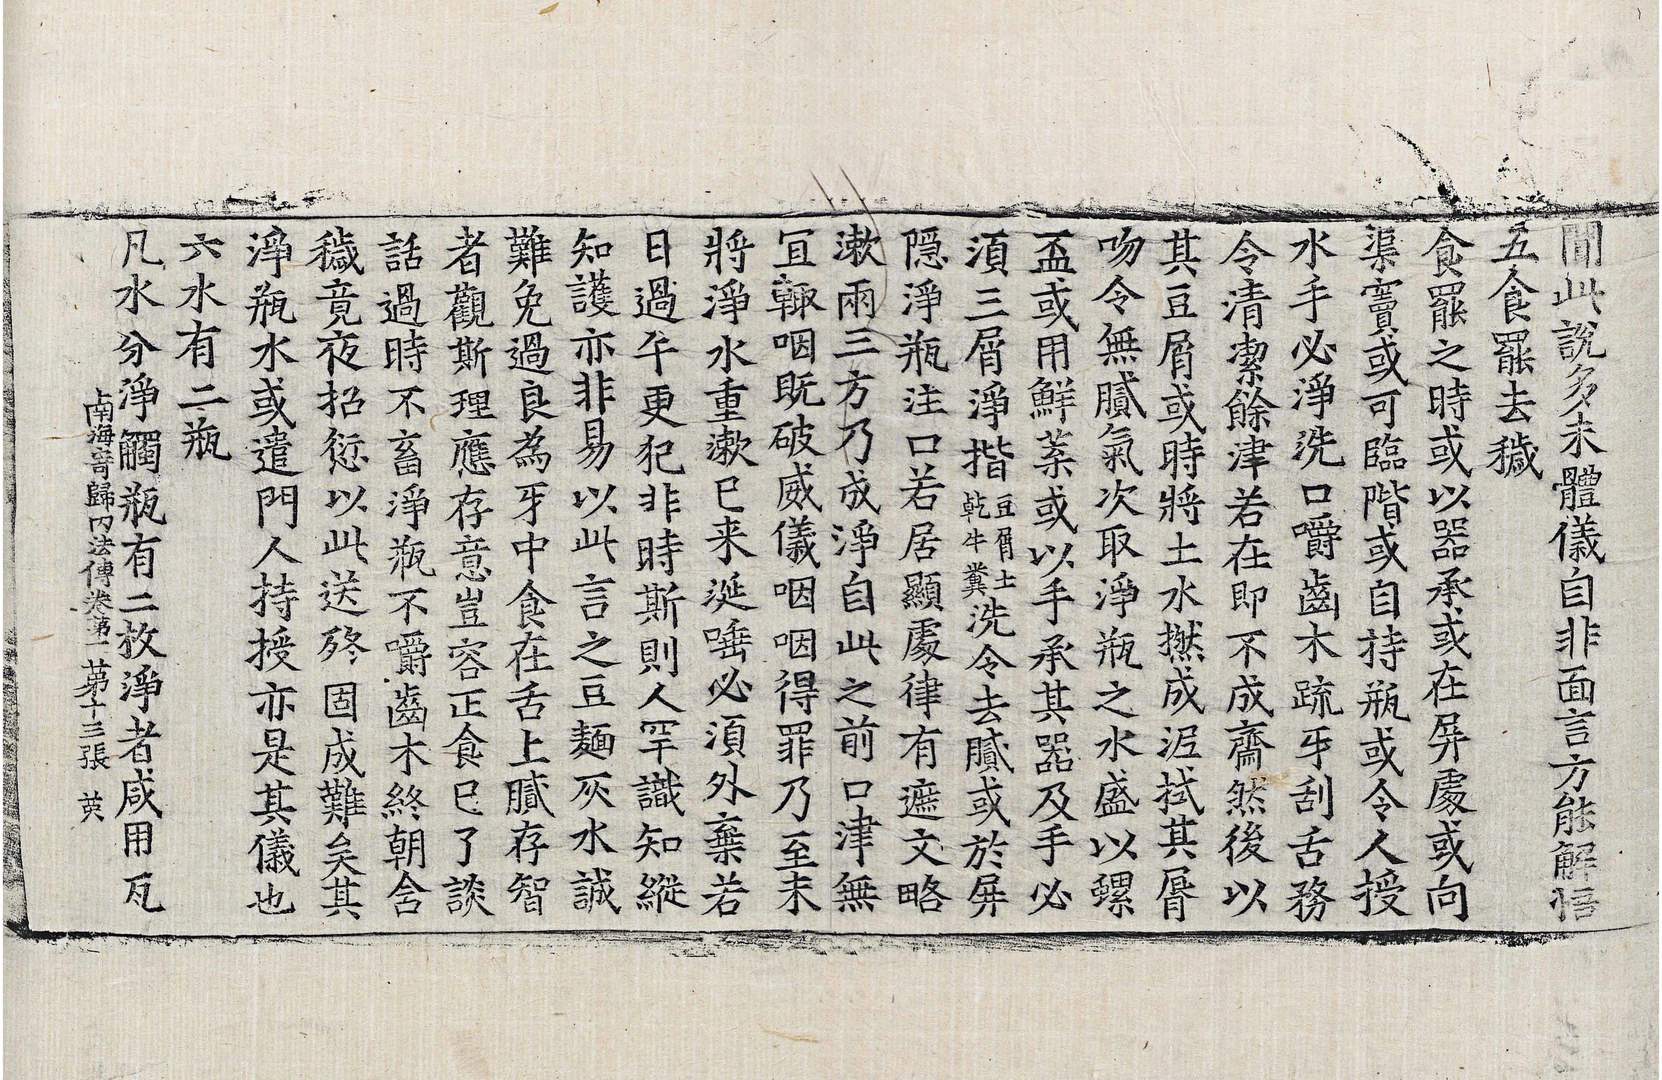 聞此說多未體儀自非面言方能解悟
五食罷去穢
食罷之時或以器承或在屏處或向
渠竇或可臨階或自持瓶或令人授
水手必淨洗口嚼齒木疏牙刮舌務
令清潔餘津若在即不成齋然後以
其豆屑或時將土水撚成泥拭其脣
吻令無膩氣次取淨瓶之水盛以螺
盃或用鮮葉或以手承其器及手必
須三屑淨揩豆屑土乾牛糞洗令去膩或於屏
隱淨瓶注口若居顯處律有遮文略
漱兩三方乃成淨自此之前口津無
冝輙咽既破威儀咽咽得罪乃至未
將淨水重漱已来涎唾必須外棄若
日過午更犯非時斯則人罕識知縱
知護亦非易以此言之豆麺灰水誠
難免過良為牙中食在舌上膩存智
者觀斯理應存意豈容正食已了談
話過時不畜淨瓶不嚼齒木終朝含
穢竟夜招愆以此送終固成難矣其
淨瓶水或遣門人持授亦是其儀也
六水有二瓶
凡水分淨觸瓶有二枚淨者咸用瓦
南海寄歸內法傳卷第一 第十三張 英